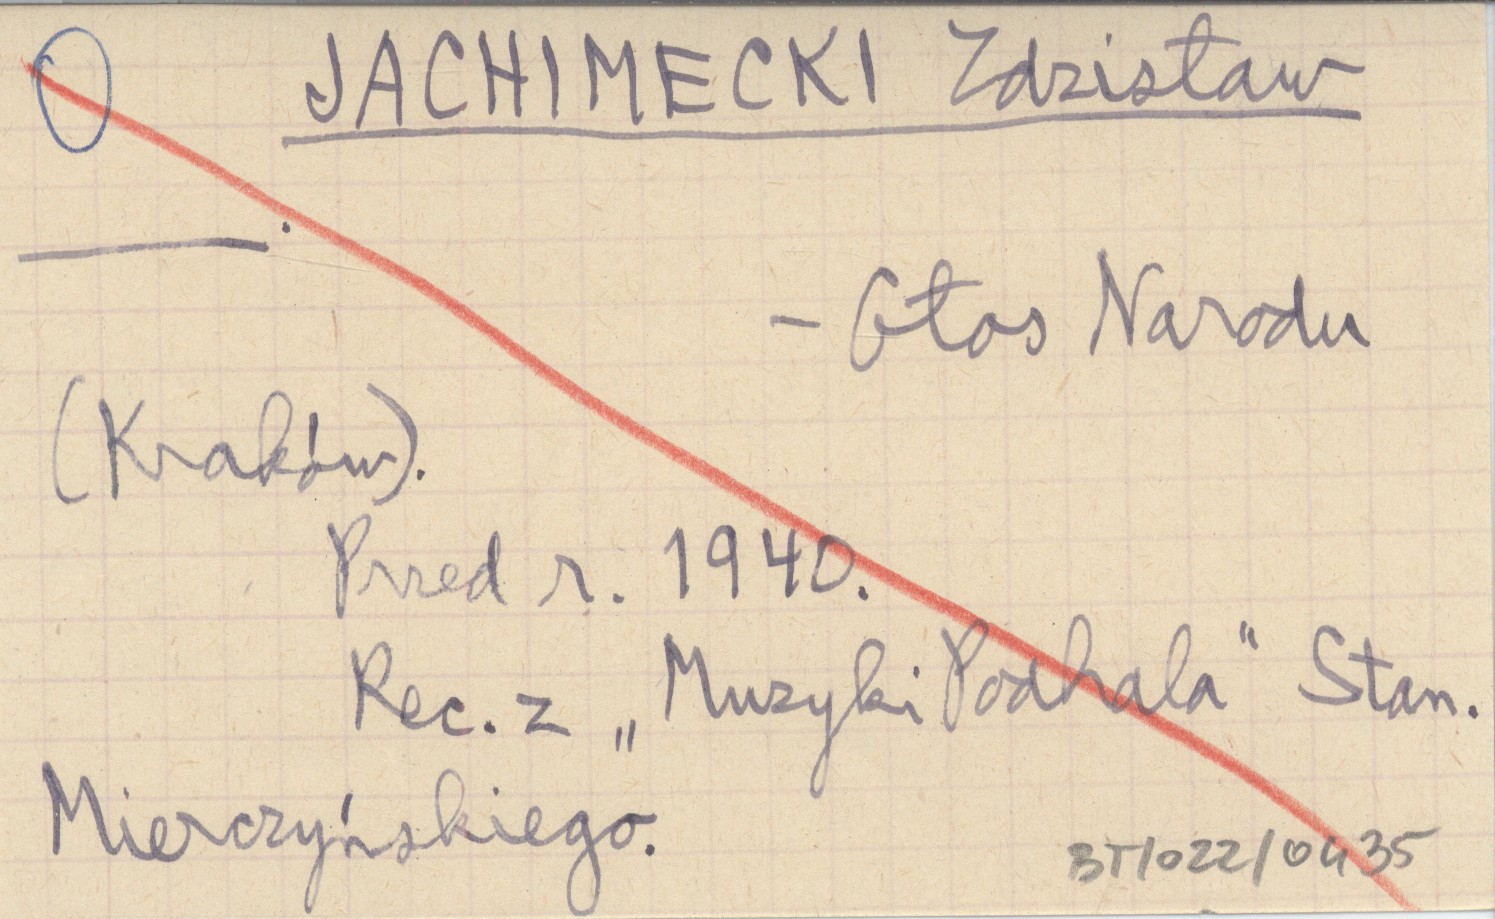 JACHIMECKI Zdzisław
———.
– Głos Narodu
(Kraków).
Przed r. 1940.
Rec. z „Muzyki Podhala" Stan.
Mierczyńskiego.
BT/022/0435